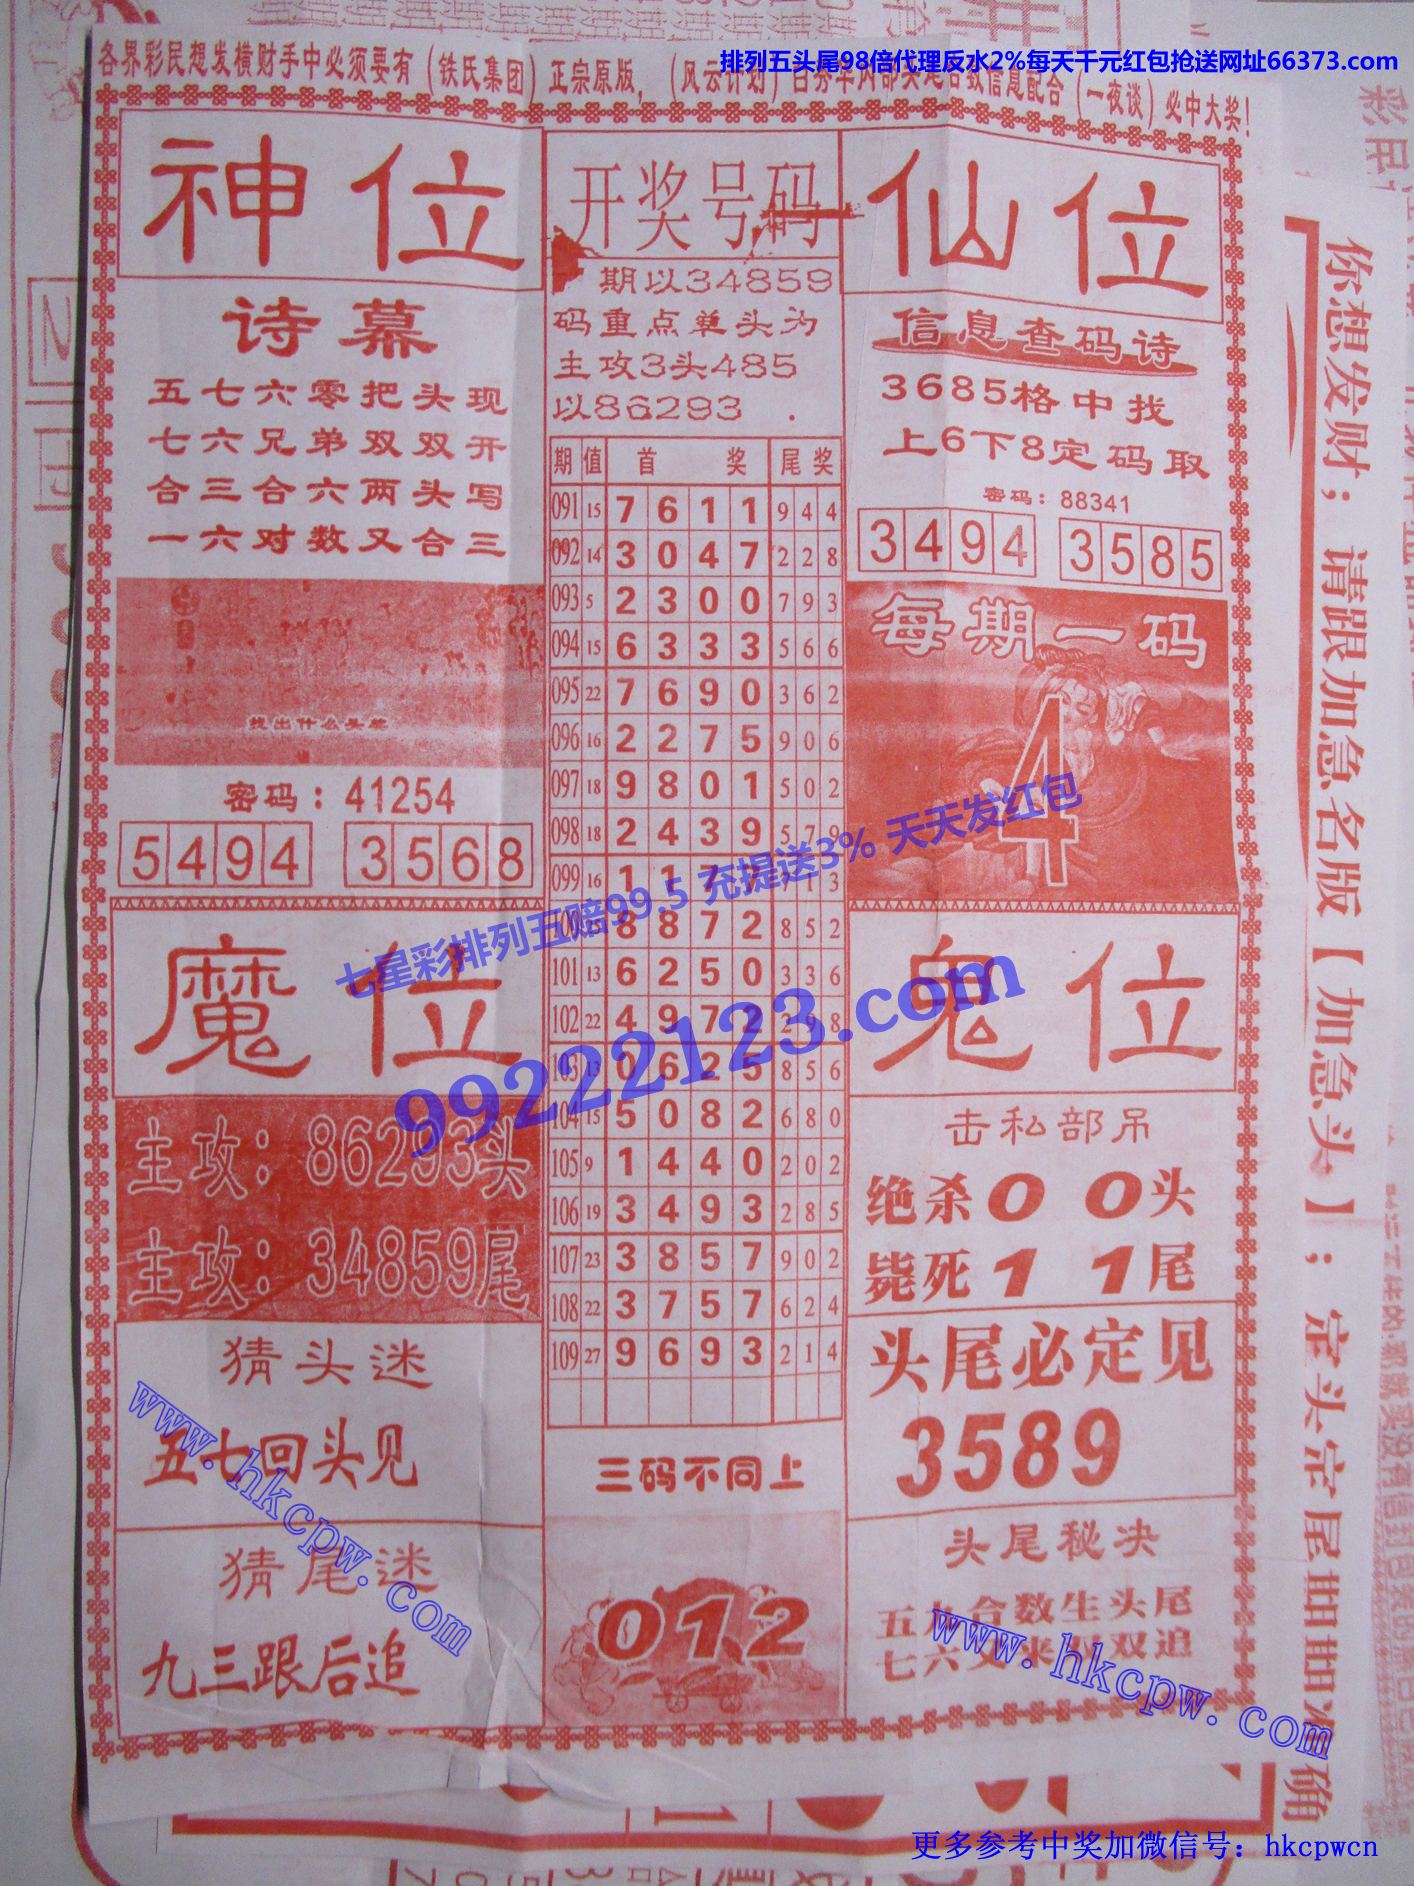 排列五头尾98倍代理反水2%每天千元红包抢送网址66373.com
各界彩民想发横财手中必须要有（铁氏集团）正宗原版，（风云计划）
信息配合（一夜谈）必中大奖！
神位
开奖号码
仙位
诗幕
五七六零把头现
七六兄弟双双开
合三合六两头写
一六对数又合三
找出什么头尾
密码：41254
5494 3568
期以34859
码重点单头为
主攻3头485
以86293．
信息查码诗
3685格中找
上6下8定码取
密码：88341
3494 3585
每期一码
4
期 值 首奖 尾奖
091 15 7 6 1 1 9 4 4
092 14 3 0 4 7 2 2 8
093 5 2 3 0 0 7 9 3
094 15 6 3 3 3 5 6 6
095 22 7 6 9 0 3 6 2
096 16 2 2 7 5 9 0 6
097 18 9 8 0 1 5 0 2
098 18 2 4 3 9 5 7 9
099 16 1 1 7 1 3
8 8 7 2 8 5 2
101 13 6 2 5 0 3 3 6
102 22 4 9 7 2 2 9 8
103 13 0 6 2 5 8 5 6
104 15 5 0 8 2 6 8 0
105 9 1 4 4 0 2 0 2
106 19 3 4 9 3 2 8 5
107 23 3 8 5 7 9 0 2
108 22 3 7 5 7 6 2 4
109 27 9 6 9 3 2 1 4
七星彩排列五赔99.5 充提送3% 天天发红包
99222123.com
魔位
主攻：86293头
主攻：34859尾
猜头迷
五七回头见
猜尾迷
九三跟后追
三码不同上
012
鬼位
击私部吊
绝杀00头
毙死11尾
头尾必定见
3589
头尾秘决
五九合数生头尾
七六又来双双追
www.hkcpw.com
www.hkcpw.com
你想发财；请跟加急名版【加急头】；定头定尾期期准确
更多参考中奖加微信号：hkcpwcn